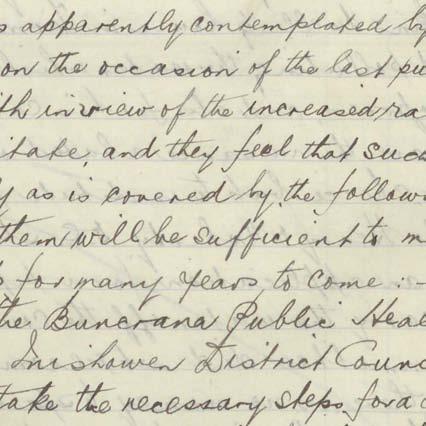 s apparently contemplated by
on the occasion of the last pu
th in view of the increased ra
itate, and they feel that such
y as is covered by the follow
them will be sufficient to m
s for many years to come :-
the Buncrana Public Heal
Inishowen District Counc
take the necessary steps for a